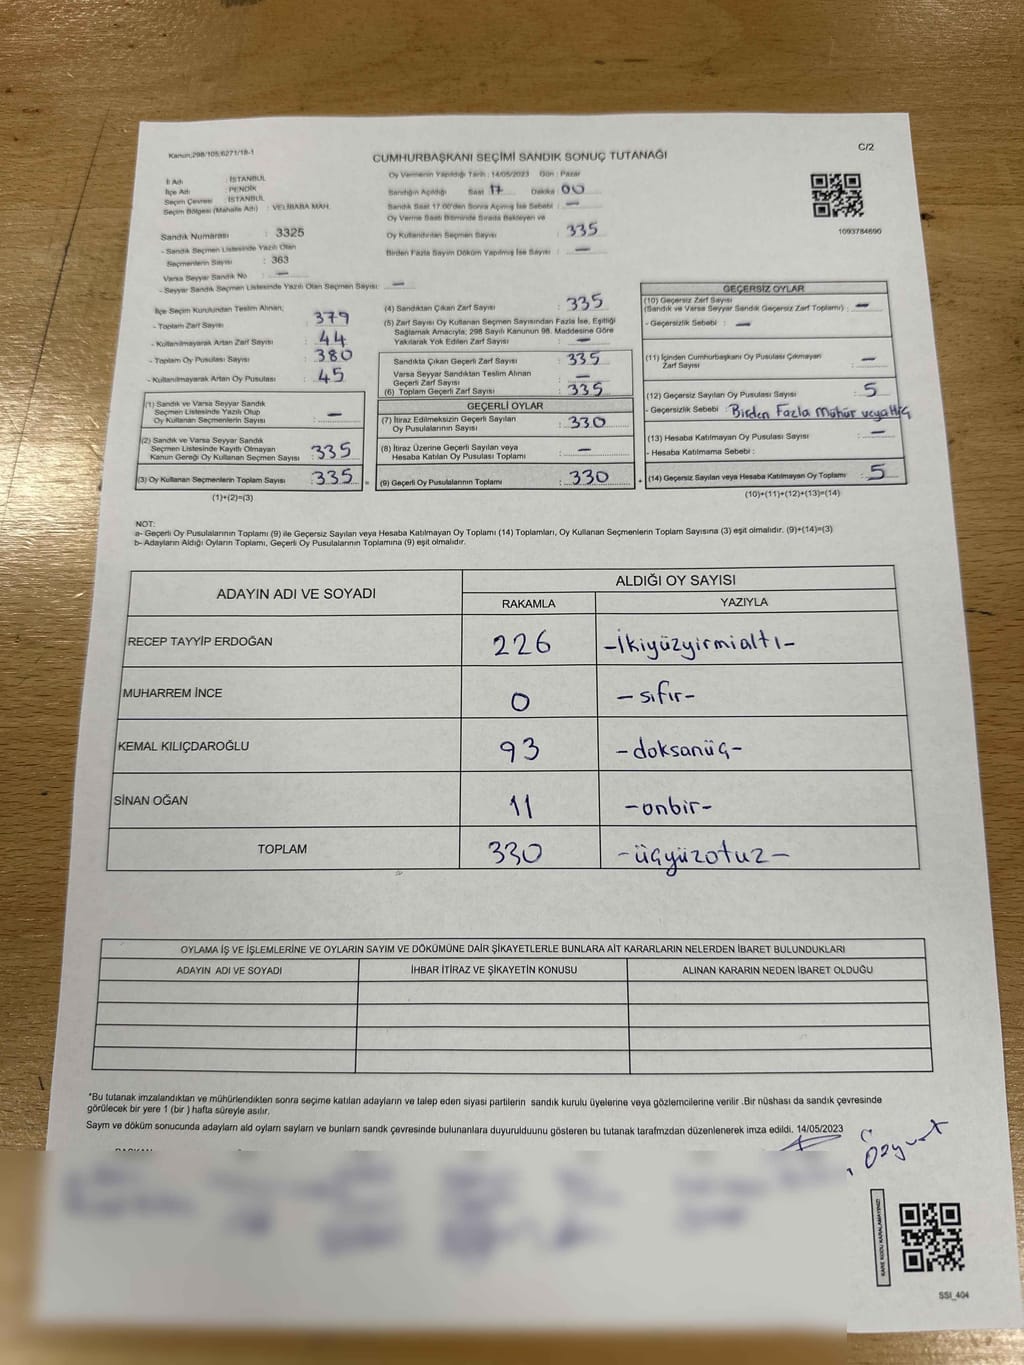 Kanun:298/105;6271/18-1
CUMHURBAŞKANI SEÇİMİ SANDIK SONUÇ TUTANAĞI
C/2
İl Adı : İSTANBUL
İlçe Adı : PENDİK
Seçim Çevresi : İSTANBUL
Seçim Bölgesi (Mahalle Adı) : VELİBABA MAH.
Sandık Numarası : 3325
- Sandık Seçmen Listesinde Yazılı Olan
Seçmenlerin Sayısı : 363
Varsa Seyyar Sandık No : —
- Seyyar Sandık Seçmen Listesinde Yazılı Olan Seçmen Sayısı: —
Oy Vermenin Yapıldığı Tarih : 14/05/2023 Gün : Pazar
Sandığın Açıldığı Saat 17 Dakika 00
Sandık Saat 17.00'den Sonra Açılmış İse Sebebi : —
Oy Verme Saati Bitiminde Sırada Bekleyen ve
Oy Kullandırılan Seçmen Sayısı : 335
Birden Fazla Sayım Döküm Yapılmış İse Sayısı : —
1093784690
İlçe Seçim Kurulundan Teslim Alınan;
- Toplam Zarf Sayısı : 379
- Kullanılmayarak Artan Zarf Sayısı : 44
- Toplam Oy Pusulası Sayısı : 380
- Kullanılmayarak Artan Oy Pusulası : 45
(1) Sandık ve Varsa Seyyar Sandık
Seçmen Listesinde Yazılı Olup
Oy Kullanan Seçmenlerin Sayısı : —
(2) Sandık ve Varsa Seyyar Sandık
Seçmen Listesinde Kayıtlı Olmayan
Kanun Gereği Oy Kullanan Seçmen Sayısı : 335
(3) Oy Kullanan Seçmenlerin Toplam Sayısı : 335
(1)+(2)=(3)
=
(4) Sandıktan Çıkan Zarf Sayısı : 335
(5) Zarf Sayısı Oy Kullanan Seçmen Sayısından Fazla İse, Eşitliği
Sağlamak Amacıyla; 298 Sayılı Kanunun 98. Maddesine Göre
Yakılarak Yok Edilen Zarf Sayısı : —
Sandıkta Çıkan Geçerli Zarf Sayısı : 335
Varsa Seyyar Sandıktan Teslim Alınan
Geçerli Zarf Sayısı : —
(6) Toplam Geçerli Zarf Sayısı : 335
GEÇERLİ OYLAR
(7) İtiraz Edilmeksizin Geçerli Sayılan
Oy Pusulalarının Sayısı : 330
(8) İtiraz Üzerine Geçerli Sayılan veya
Hesaba Katılan Oy Pusulası Toplamı : —
(9) Geçerli Oy Pusulalarının Toplamı : 330
+
GEÇERSİZ OYLAR
(10) Geçersiz Zarf Sayısı
(Sandık ve Varsa Seyyar Sandık Geçersiz Zarf Toplamı) : —
- Geçersizlik Sebebi : —
(11) İçinden Cumhurbaşkanı Oy Pusulası Çıkmayan
Zarf Sayısı : —
(12) Geçersiz Sayılan Oy Pusulası Sayısı : 5
- Geçersizlik Sebebi : Birden Fazla Mühür veya Hiç
(13) Hesaba Katılmayan Oy Pusulası Sayısı : —
- Hesaba Katılmama Sebebi :
(14) Geçersiz Sayılan veya Hesaba Katılmayan Oy Toplamı : 5
(10)+(11)+(12)+(13)=(14)
NOT:
a- Geçerli Oy Pusulalarının Toplamı (9) ile Geçersiz Sayılan veya Hesaba Katılmayan Oy Toplamı (14) Toplamları, Oy Kullanan Seçmenlerin Toplam Sayısına (3) eşit olmalıdır. (9)+(14)=(3)
b- Adayların Aldığı Oyların Toplamı, Geçerli Oy Pusulalarının Toplamına (9) eşit olmalıdır.
ADAYIN ADI VE SOYADI
ALDIĞI OY SAYISI
RAKAMLA YAZIYLA
RECEP TAYYİP ERDOĞAN 226 -İkiyüzyirmialtı-
MUHARREM İNCE 0 -sıfır-
KEMAL KILIÇDAROĞLU 93 -doksanüç-
SİNAN OĞAN 11 -onbir-
TOPLAM 330 -üçyüzotuz-
OYLAMA İŞ VE İŞLEMLERİNE VE OYLARIN SAYIM VE DÖKÜMÜNE DAİR ŞİKAYETLERLE BUNLARA AİT KARARLARIN NELERDEN İBARET BULUNDUKLARI
ADAYIN ADI VE SOYADI İHBAR İTİRAZ VE ŞİKAYETİN KONUSU ALINAN KARARIN NEDEN İBARET OLDUĞU
*Bu tutanak imzalandıktan ve mühürlendikten sonra seçime katılan adayların ve talep eden siyasi partilerin sandık kurulu üyelerine veya gözlemcilerine verilir .Bir nüshası da sandık çevresinde
görülecek bir yere 1 (bir ) hafta süreyle asılır.
Saym ve döküm sonucunda adaylarn ald oylarn saylarn ve bunlarn sandk çevresinde bulunanlara duyurulduunu gösteren bu tutanak tarafmzdan düzenlenerek imza edildi. 14/05/2023
Özyurt
KARE KODU KARALAMAYINIZ!
SSI_404